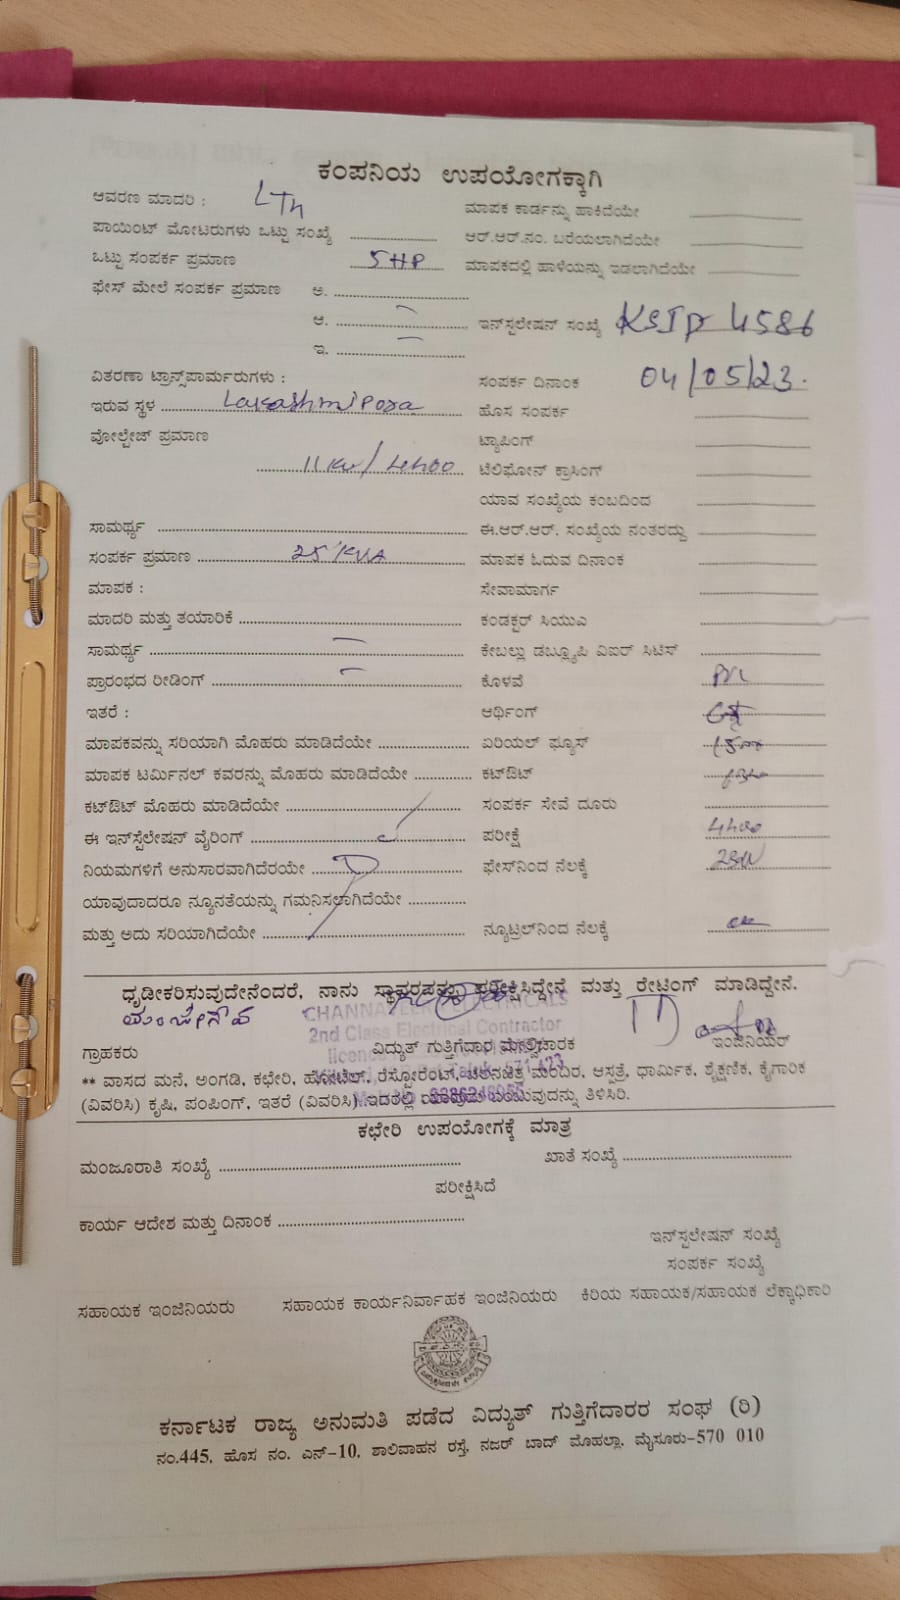 ಕಂಪನಿಯ ಉಪಯೋಗಕ್ಕಾಗಿ
ಆವರಣ ಮಾದರಿ : ಮಾಪಕ ಕಾರ್ಡನ್ನು ಹಾಕಿದೆಯೇ
ಪಾಯಿಂಟ್ ಮೋಟರುಗಳು ಒಟ್ಟು ಸಂಖ್ಯೆ ಆರ್.ಆರ್.ನಂ. ಬರೆಯಲಾಗಿದೆಯೇ
ಒಟ್ಟು ಸಂಪರ್ಕ ಪ್ರಮಾಣ 5HP ಮಾಪಕದಲ್ಲಿ ಹಾಳೆಯನ್ನು ಇಡಲಾಗಿದೆಯೇ
ಫೇಸ್ ಮೇಲೆ ಸಂಪರ್ಕ ಪ್ರಮಾಣ ಅ.
ಆ. ಇನ್‌ಸ್ಟಲೇಷನ್ ಸಂಖ್ಯೆ 4586
ಇ.
ವಿತರಣಾ ಟ್ರಾನ್ಸ್‌ಫಾರ್ಮರುಗಳು : ಸಂಪರ್ಕ ದಿನಾಂಕ 04/05/23.
ಇರುವ ಸ್ಥಳ ಹೊಸ ಸಂಪರ್ಕ
ವೋಲ್ಟೇಜ್ ಪ್ರಮಾಣ ಟ್ಯಾಪಿಂಗ್
11 KV/ ಟೆಲಿಫೋನ್ ಕ್ರಾಸಿಂಗ್
ಯಾವ ಸಂಖ್ಯೆಯ ಕಂಬದಿಂದ
ಸಾಮರ್ಥ್ಯ ಈ.ಆರ್.ಆರ್. ಸಂಖ್ಯೆಯ ನಂತರದ್ದು
ಸಂಪರ್ಕ ಪ್ರಮಾಣ 25 KVA ಮಾಪಕ ಓದುವ ದಿನಾಂಕ
ಮಾಪಕ : ಸೇವಾಮಾರ್ಗ
ಮಾದರಿ ಮತ್ತು ತಯಾರಿಕೆ ಕಂಡಕ್ಟರ್ ಸಿಯುಎ
ಸಾಮರ್ಥ್ಯ ಕೇಬಲ್ಲು ಡಬ್ಲ್ಯೂಪಿ ವಿಐರ್ ಸಿಟಿಸ್
ಪ್ರಾರಂಭದ ರೀಡಿಂಗ್ ಕೊಳವೆ
ಇತರೆ : ಆರ್ಥಿಂಗ್
ಮಾಪಕವನ್ನು ಸರಿಯಾಗಿ ಮೊಹರು ಮಾಡಿದೆಯೇ ಏರಿಯಲ್ ಫ್ಯೂಸ್
ಮಾಪಕ ಟರ್ಮಿನಲ್ ಕವರನ್ನು ಮೊಹರು ಮಾಡಿದೆಯೇ ಕಟ್‌ಔಟ್
ಕಟ್‌ಔಟ್ ಮೊಹರು ಮಾಡಿದೆಯೇ ಸಂಪರ್ಕ ಸೇವೆ ದೂರು
ಈ ಇನ್‌ಸ್ಪೆಲೇಷನ್ ವೈರಿಂಗ್ ಪರೀಕ್ಷೆ
ನಿಯಮಗಳಿಗೆ ಅನುಸಾರವಾಗಿದೆರಯೇ ಫೇಸ್‌ನಿಂದ ನೆಲಕ್ಕೆ
ಯಾವುದಾದರೂ ನ್ಯೂನತೆಯನ್ನು ಗಮನಿಸಲಾಗಿದೆಯೇ
ಮತ್ತು ಅದು ಸರಿಯಾಗಿದೆಯೇ ನ್ಯೂಟ್ರಲ್‌ನಿಂದ ನೆಲಕ್ಕೆ
ಧೃಡೀಕರಿಸುವುದೇನೆಂದರೆ, ನಾನು ಸ್ಥಾವರವನ್ನು ಪರೀಕ್ಷಿಸಿದ್ದೇನೆ ಮತ್ತು ರೇಟಿಂಗ್ ಮಾಡಿದ್ದೇನೆ.
ELECTRICALS
2nd Class Electrical Contractor
ಗ್ರಾಹಕರು ವಿದ್ಯುತ್ ಗುತ್ತಿಗೆದಾರ ಮೇಲ್ವಿಚಾರಕ ಇಂಜಿನಿಯರ್
** ವಾಸದ ಮನೆ, ಅಂಗಡಿ, ಕಛೇರಿ, ಹೋಟೆಲ್, ರೆಸ್ಟೋರೆಂಟ್, ಚಲನಚಿತ್ರ ಮಂದಿರ, ಆಸ್ಪತ್ರೆ, ಧಾರ್ಮಿಕ, ಶೈಕ್ಷಣಿಕ, ಕೈಗಾರಿಕ
(ವಿವರಿಸಿ) ಕೃಷಿ, ಪಂಪಿಂಗ್, ಇತರೆ (ವಿವರಿಸಿ) ಇದರಲ್ಲಿ ಯಾವುದು ಎಂಬುವುದನ್ನು ತಿಳಿಸಿರಿ.
ಕಛೇರಿ ಉಪಯೋಗಕ್ಕೆ ಮಾತ್ರ
ಮಂಜೂರಾತಿ ಸಂಖ್ಯೆ ಖಾತೆ ಸಂಖ್ಯೆ
ಪರೀಕ್ಷಿಸಿದೆ
ಕಾರ್ಯ ಆದೇಶ ಮತ್ತು ದಿನಾಂಕ
ಇನ್‌ಸ್ಟಲೇಷನ್ ಸಂಖ್ಯೆ
ಸಂಪರ್ಕ ಸಂಖ್ಯೆ
ಸಹಾಯಕ ಇಂಜಿನಿಯರು ಸಹಾಯಕ ಕಾರ್ಯನಿರ್ವಾಹಕ ಇಂಜಿನಿಯರು ಕಿರಿಯ ಸಹಾಯಕ/ಸಹಾಯಕ ಲೆಕ್ಕಾಧಿಕಾರಿ
ಕರ್ನಾಟಕ ರಾಜ್ಯ ಅನುಮತಿ ಪಡೆದ ವಿದ್ಯುತ್ ಗುತ್ತಿಗೆದಾರರ ಸಂಘ (ರಿ)
ನಂ.445, ಹೊಸ ನಂ. ಎನ್-10, ಶಾಲಿವಾಹನ ರಸ್ತೆ, ನಜರ್ ಬಾದ್ ಮೊಹಲ್ಲಾ, ಮೈಸೂರು-570 010